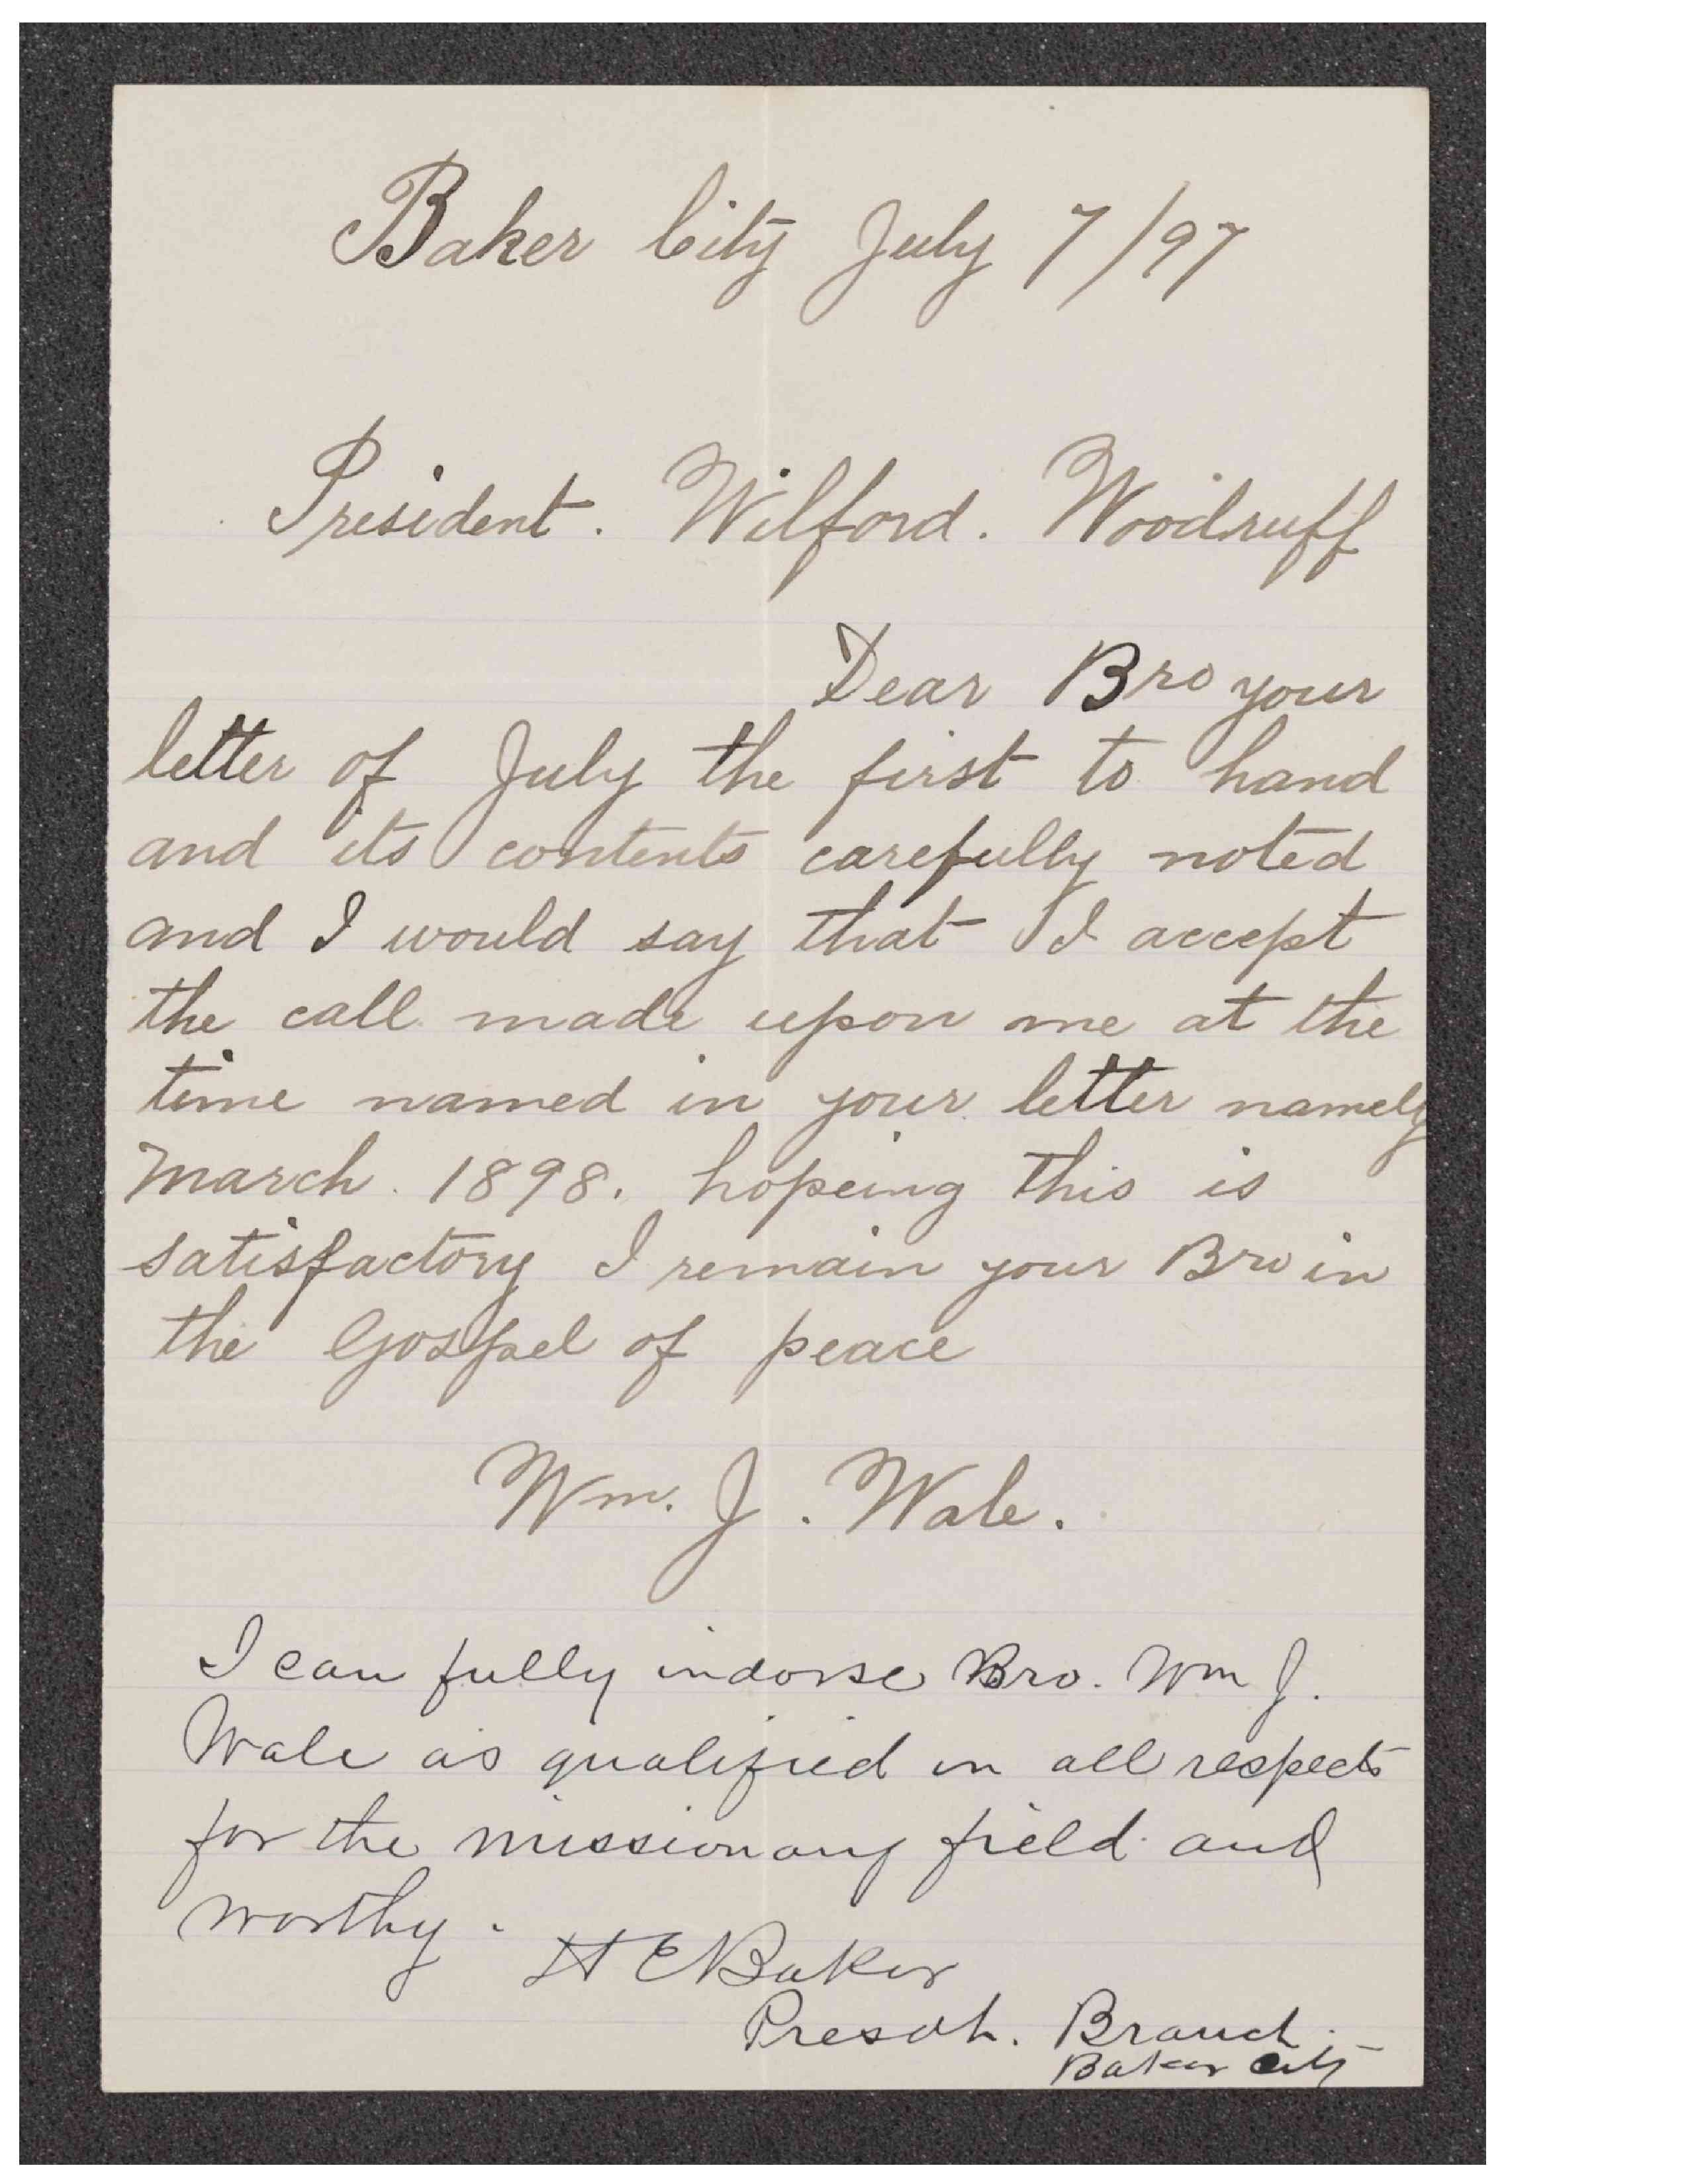 Baker City July 7/97
President. Wilford. Woodruff
Dear Bro your
letter of July the first to hand
and its contents carefully noted
and I would say that I accept
the call made upon me at the
time named in your letter namely
March. 1898. hopeing this is
satisfactory I remain your Bro in
the Gospel of peace
Wm. J. Wale.
I can fully indorse Bro. Wm J.
Wale as qualified in all respects
for the missionary field and
worthy.
H E Baker
Presdt. Branch
Baker City